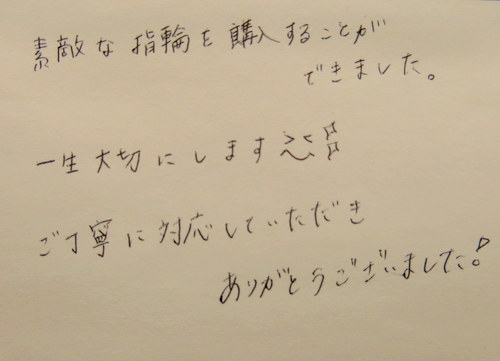 素敵な指輪を購入することが
できました。
一生大切にします
ご丁寧に対応していただき
ありがとうございました!